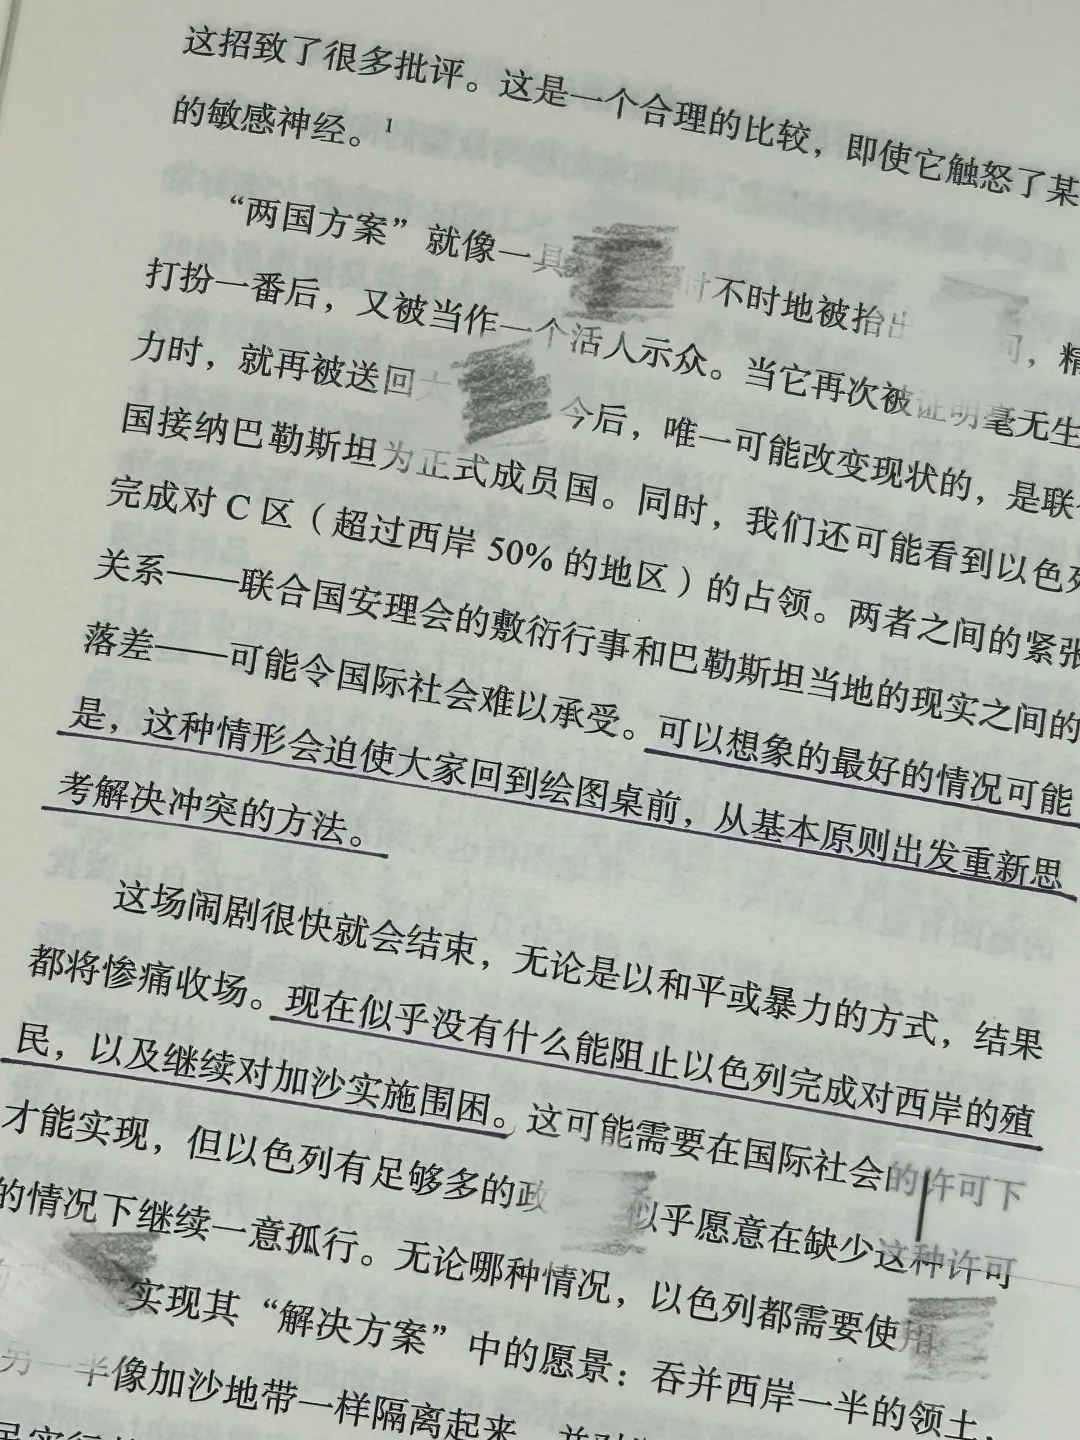 这招致了很多批评。这是一个合理的比较，即使它触怒了某
的敏感神经。¹
“两国方案”就像一具 时不时地被抬出 司，精
打扮一番后，又被当作一个活人示众。当它再次被证明毫无生
力时，就再被送回大 今后，唯一可能改变现状的，是联
国接纳巴勒斯坦为正式成员国。同时，我们还可能看到以色列
完成对 C 区（超过西岸 50% 的地区）的占领。两者之间的紧张
关系——联合国安理会的敷衍行事和巴勒斯坦当地的现实之间的
落差——可能令国际社会难以承受。可以想象的最好的情况可能
是，这种情形会迫使大家回到绘图桌前，从基本原则出发重新思
考解决冲突的方法。
这场闹剧很快就会结束，无论是以和平或暴力的方式，结果
都将惨痛收场。现在似乎没有什么能阻止以色列完成对西岸的殖
民，以及继续对加沙实施围困。这可能需要在国际社会的许可下
才能实现，但以色列有足够多的政 似乎愿意在缺少这种许可
的情况下继续一意孤行。无论哪种情况，以色列都需要使用
实现其“解决方案”中的愿景：吞并西岸一半的领土，
另一半像加沙地带一样隔离起来，并对